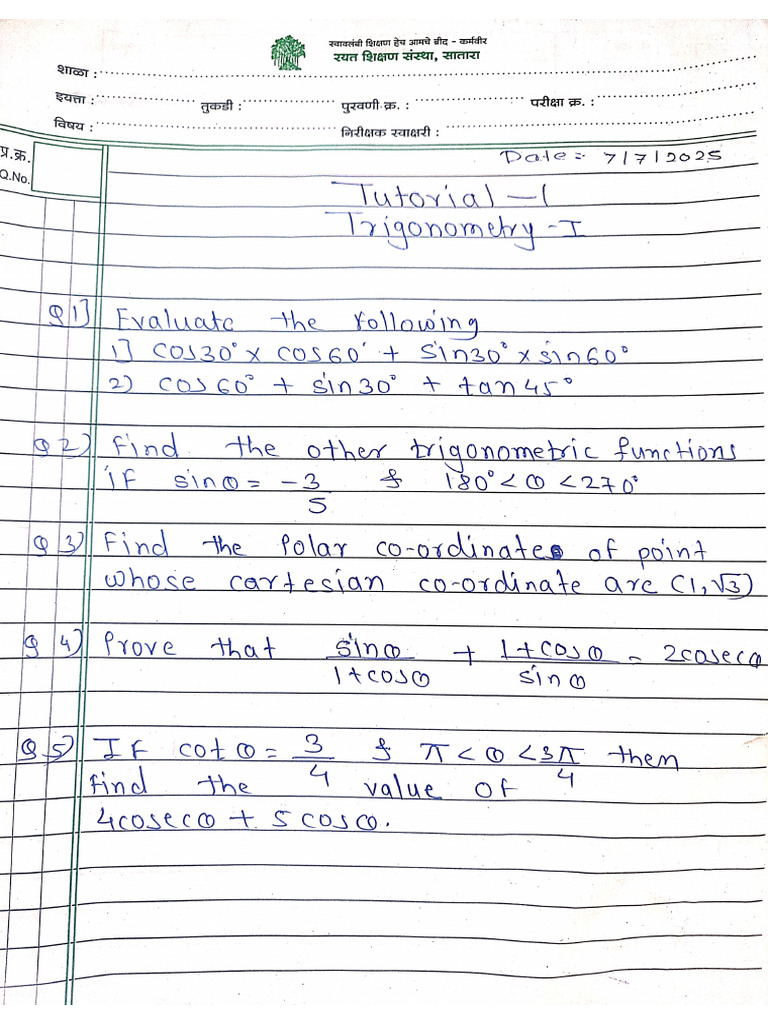 स्वावलंबी शिक्षण हेच आमचे ब्रीद - कर्मवीर
रयत शिक्षण संस्था, सातारा
शाळा :
इयत्ता : तुकडी : पुरवणी क्र. : परीक्षा क्र. :
विषय : निरीक्षक स्वाक्षरी :
प्र.क्र. Date = 7/7/2025
Q.No.
Tutorial - 1
Trigonometry - I
Q 1] Evaluate the following
1] cos30° x cos60° + sin30° x sin60°
2) cos60° + sin30° + tan45°
Q 2) Find the other trigonometric functions
if sinθ = -3/5 & 180° < θ < 270°
Q 3) Find the Polar co-ordinates of point
whose cartesian co-ordinate are (1, √3)
Q 4) Prove that sinθ/1+cosθ + 1+cosθ/sinθ = 2cosecθ
Q 5) If cotθ = 3/4 & π < θ < 3π/4 them
find the value of
4cosecθ + 5cosθ.